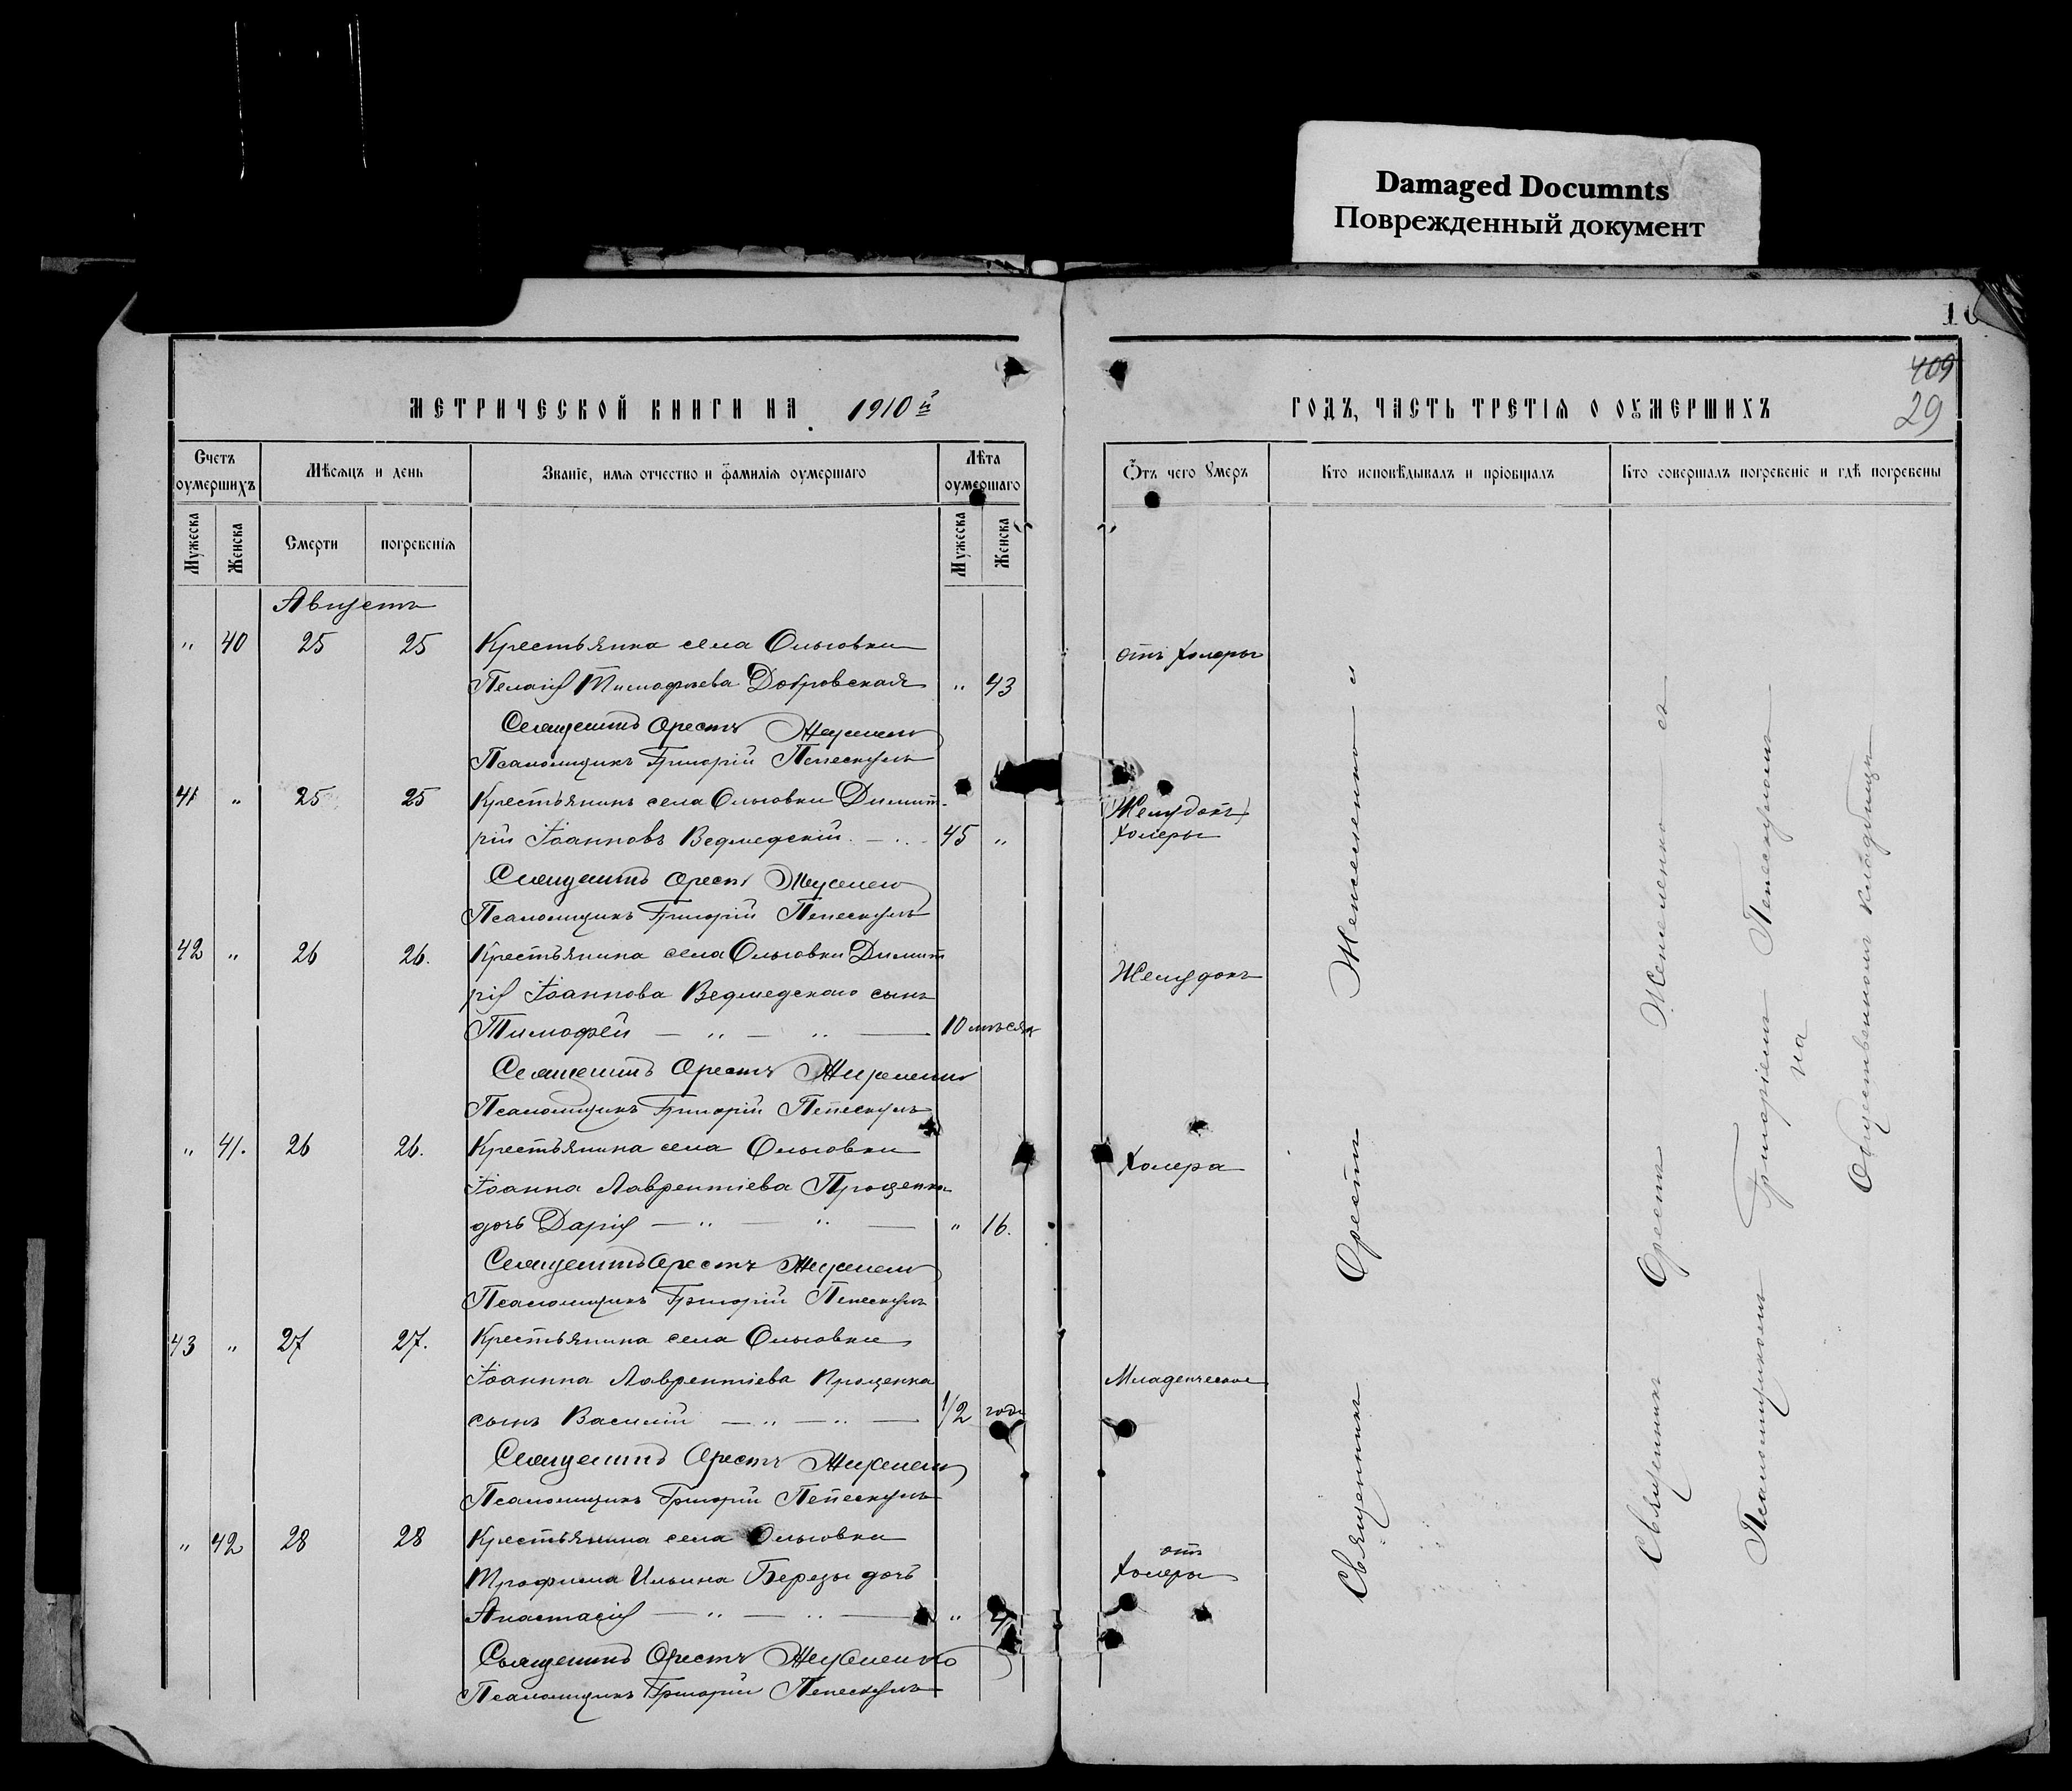 Damaged Documnts
Поврежденный документ
10
409
29
МЕТРИЧЕСКОЙ КНИГИ НА 1910й
ГОДЪ, ЧАСТЬ ТРЕТІЯ О ОУМЕРШИХЪ
Счетъ оумершихъ
Мѣсяцъ и день
Званіе, имя отчество и фамилія оумершаго
Лѣта оумершаго
Ѿтъ чего Умеръ
Кто исповѣдывалъ и пріобщалъ
Кто совершалъ погребеніе и гдѣ погребены
Мужеска
Женска
Смерти
погребенія
Мужеска
Женска
Августъ
" 40 25 25 Крестьянка села Ольговки
отъ холеры
Пелагія Тимофѣева Добровская " 43
Священникъ Орестъ
Псаломщикъ Григорій Пепескулъ
41 " 25 25 Крестьянинъ села Ольговки Димит-
Желудокъ
рій Іоанновъ Ведмедскій 45 "
холеры
Священникъ Орестъ
Псаломщикъ Григорій Пепескулъ
42 " 26 26. Крестьянина села Ольговки Димит
Желудокъ
рія Іоаннова Ведмедскаго сынъ
Тимофей — " — " — 10 мѣсяц
Священникъ Орестъ
Псаломщикъ Григорій Пепескулъ
" 41. 26 26. Крестьянина села Ольговки
Холера
Іоанна Лаврентіева Проценка
дочь Дарія — " — " — " 16.
Священникъ Орестъ
Псаломщикъ Григорій Пепескулъ
43 " 27 27. Крестьянина села Ольговки
Іоанна Лаврентіева Проценка
Младенческое
сынъ Василій — " — " — 1/2 года
Священникъ Орестъ
Псаломщикъ Григорій Пепескулъ
" 42 28 28 Крестьянина села Ольговки
отъ
Трофима Ильина Березы дочь
холеры
Анастасія — " — " — "
Священникъ Орестъ
Псаломщикъ Григорій Пепескулъ
Священникъ Орестъ
Священникъ Орестъ съ
Псаломщикомъ Григоріемъ Пепескуломъ
на
Общественномъ кладбищѣ